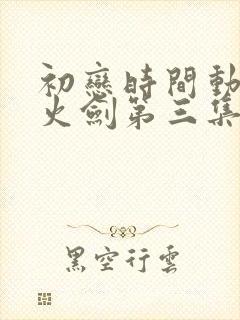 初戀時間動
火劍第三集
黑空行雲